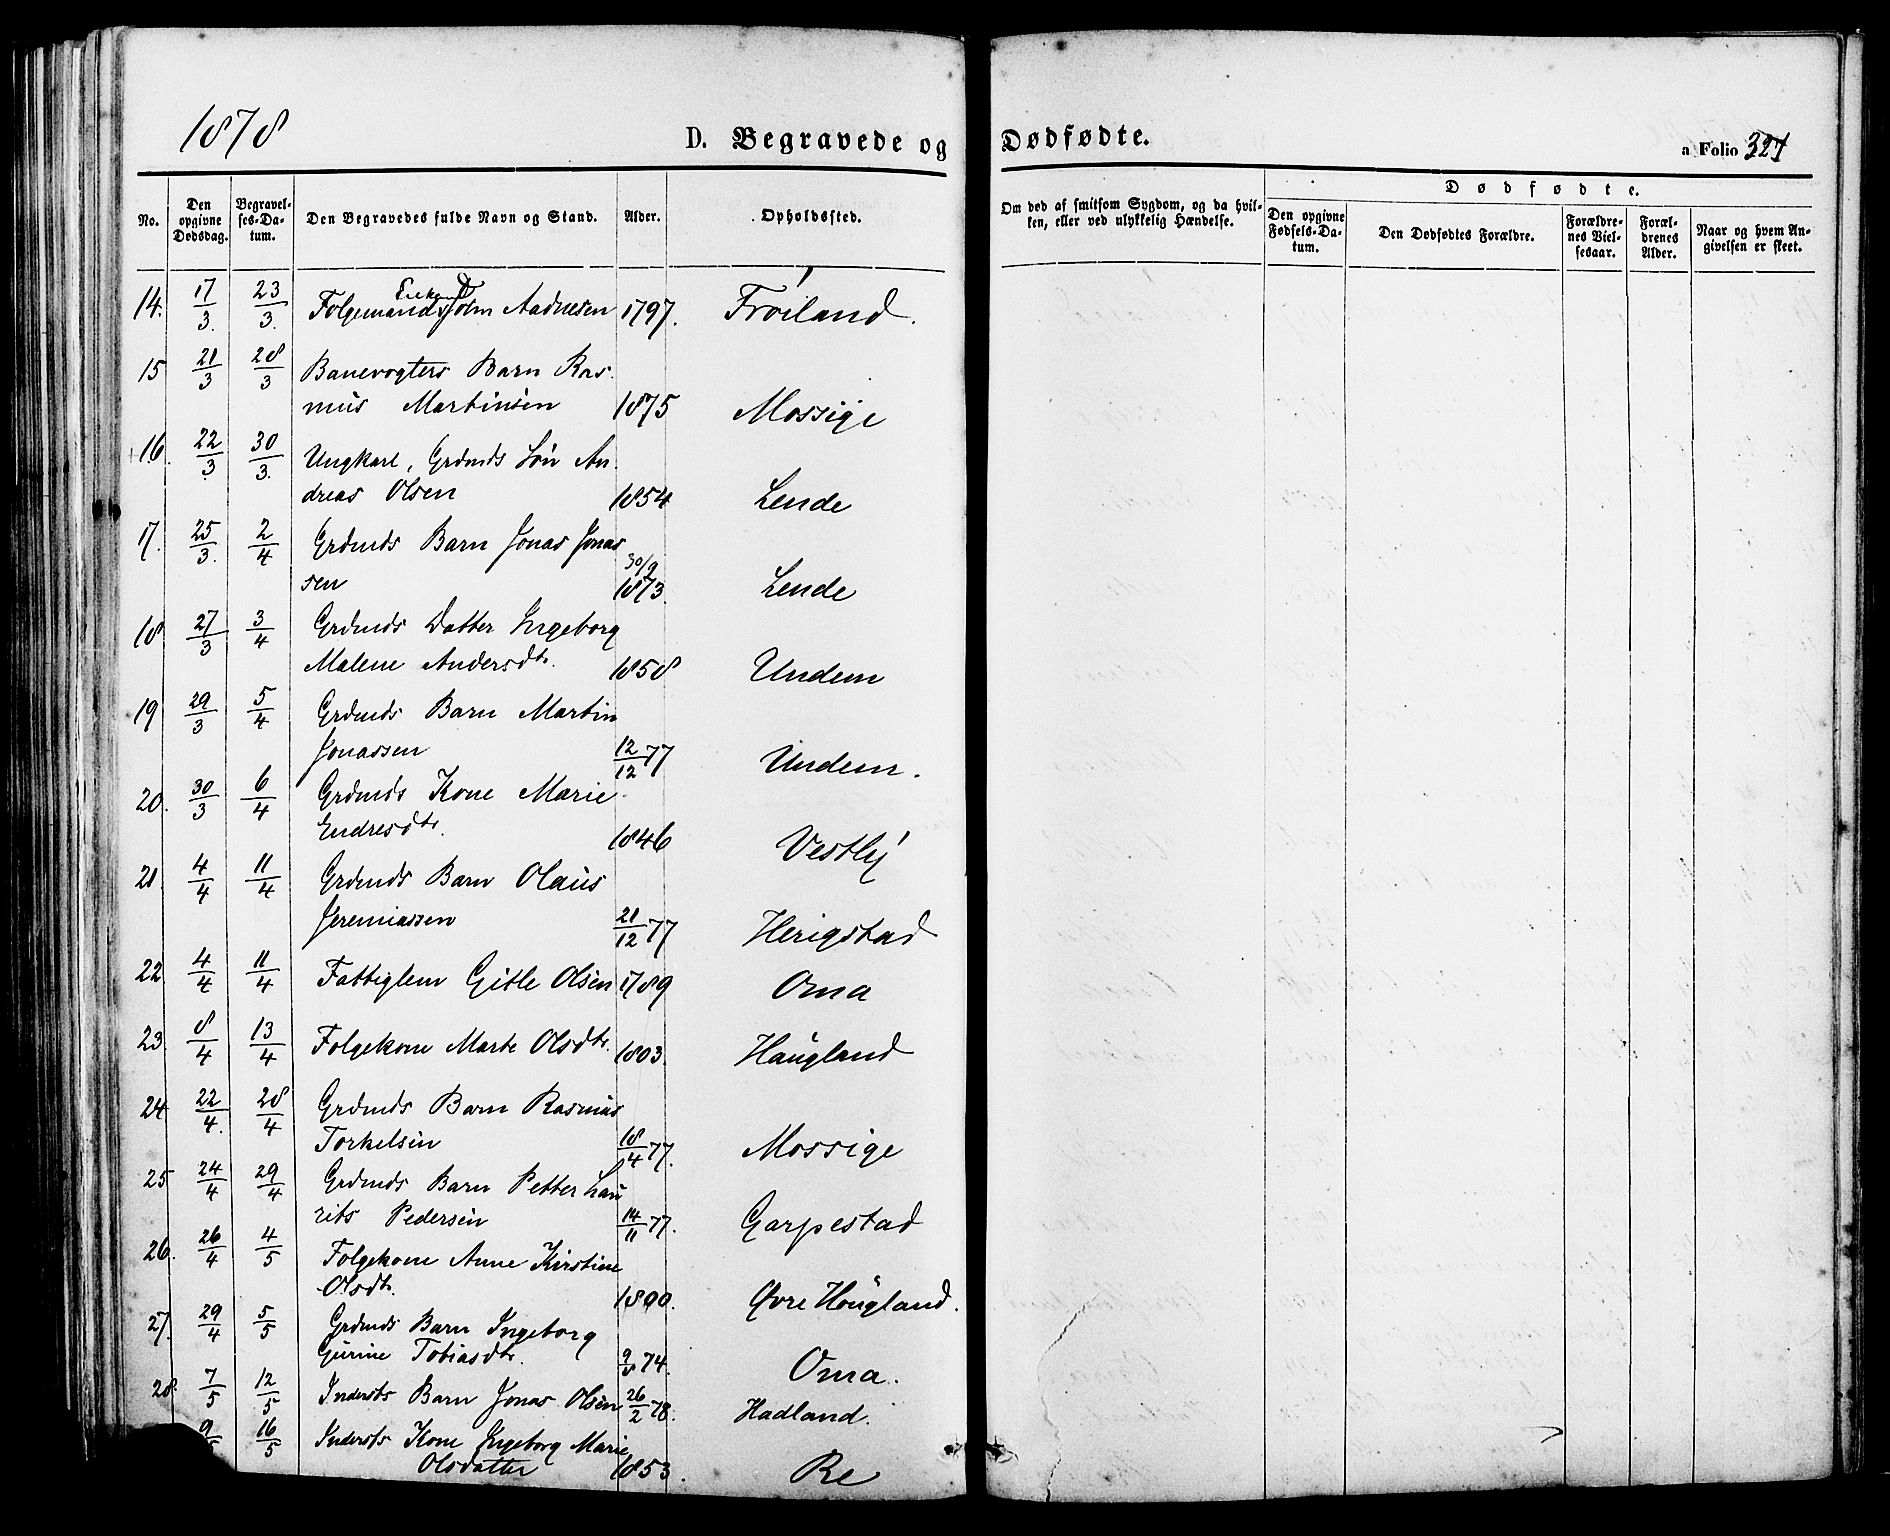 1878
D. Begravede og Dødfødte.
a Folio 321
No.
Den opgivne Dødsdag.
Begravelses-Datum.
Den Begravedes fulde Navn og Stand.
Alder.
Opholdssted.
Om død af smitsom Sygdom, og da hvilken, eller ved ulykkelig Hændelse.
Dødfødte.
Den opgivne Fødsels-Datum.
Den Dødfødtes Forældre.
Forældrenes Vielsesaar.
Forældrenes Alder.
Naar og hvem Angivelsen er skeet.
14. 17/3. 23/3. Folgemands John Aadnesen 1797. Frøiland.
15 21/3 28/3 Banevogters Barn Ras
mus Martinsen 1875 Mossige
16. 22/3. 30/3. Ungkarl, Grdmds Søn An
dreas Olsen 1854 Lende
17. 25/3. 2/4 Grdmds Barn Jonas Jonas
sen 30/9 1873. Lende
18 27/3 3/4 Grdmds Datter Ingeborg
Malene Andersdtr. 1858 Undem
19 29/3 5/4 Grdmds Barn Martin
Jonassen 12/12 77 Undem.
20. 30/3 6/4 Grdmds Kone Marie
Endresdtr. 1846 Vestly
21. 4/4 11/4 Grdmds Barn Olaus
Jeremiassen 21/12 77 Herigstad
22 4/4 11/4 Fattiglem Gitle Olsen 1789 Oma
23. 8/4 13/4 Folgekone Marte Olsdtr. 1803. Haugland
24 22/4. 28/4 Grdmds Barn Rasmus
Torkelsen 18/4 77. Mossige
25 24/4 29/4 Grdmds Barn Petter Lau
rits Pedersen 14/11 77. Garpestad
26. 26/4 4/5 Folgekone Anne Kirstine
Olsdtr. 1800. Øvre Høugland.
27. 29/4 5/5 Grdmds Barn Ingeborg
Gurine Tobiasdtr. 9/8 74. Oma.
28. 7/5 12/5 Indersts Barn Jonas Olsen 26/2 78. Hadland.
9/5 16/5 Indersts Kone Ingeborg Marie
Olsdatter 1853. Re